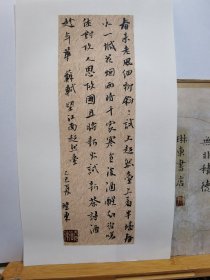 春未老風細柳斜〻試上超然臺上看半壕春
水一城花烟雨暗千家寒食後酒醒却咨嗟
休對故人思故國且將新火試新茶詩酒
趁年華 蘇軾望江南超然臺